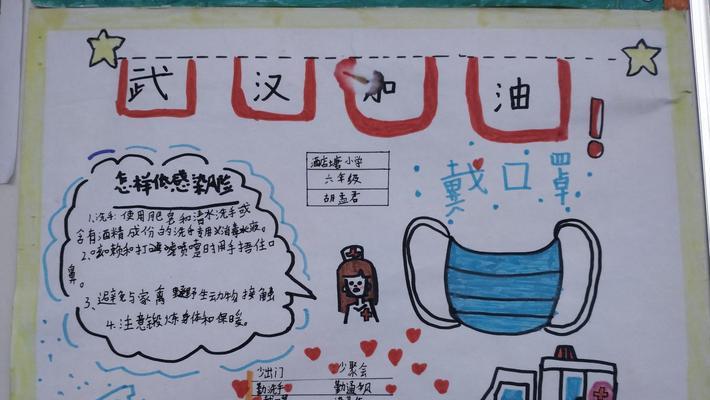 武 汉 加 油 !
怎样低感染风险
1.洗手:使用肥皂和清水洗手或
含有酒精成份的洗手
2.咳嗽和打喷嚏时用手捂住口
鼻。
3、避免与家禽野生动物接触
4.注意锻炼身体和保暖。
小学
六年级
胡孟君
戴口罩
少出门 少聚会
勤洗手 勤通风